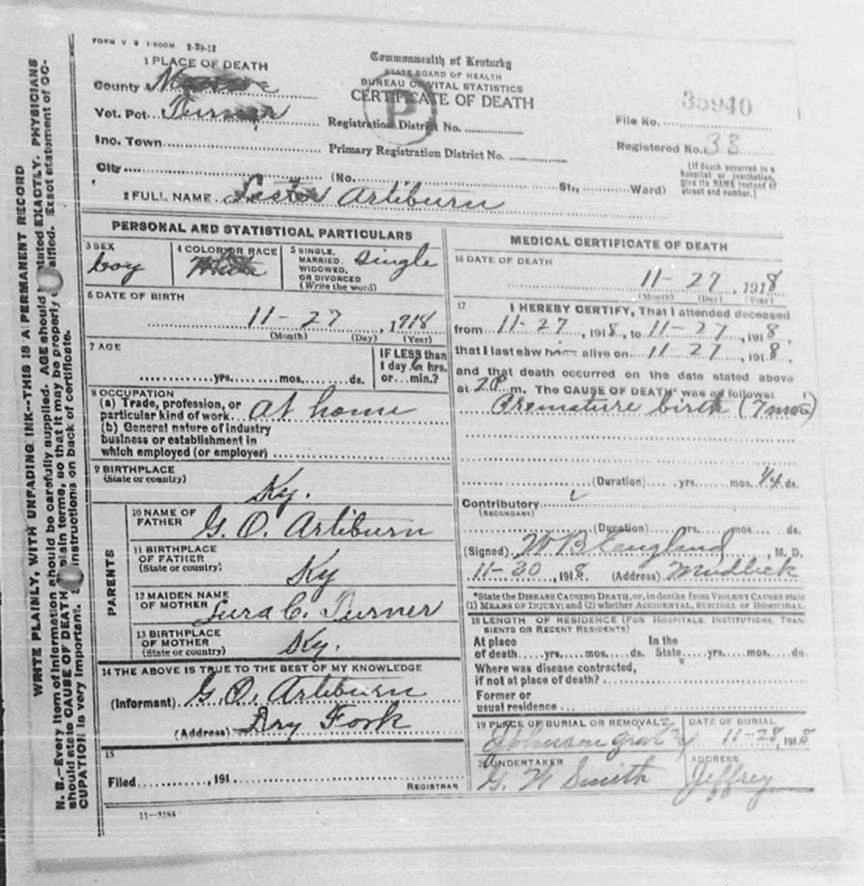 FORM V. S. 1-500M. 2-29-12
1 PLACE OF DEATH
County
Vot. Pct. Turner
Inc. Town
City (No. St., Ward)
Commonwealth of Kentucky
STATE BOARD OF HEALTH
BUREAU OF VITAL STATISTICS
CERTIFICATE OF DEATH
P
Registration District No.
Primary Registration District No.
35940
File No.
Registered No. 33
[If death occurred in a
hospital or institution,
give its NAME instead of
street and number.]
2 FULL NAME Lester Arliburn
PERSONAL AND STATISTICAL PARTICULARS
3 SEX
boy
4 COLOR OR RACE
White
5 SINGLE,
MARRIED,
WIDOWED,
OR DIVORCED
(Write the word)
single
6 DATE OF BIRTH
11-27, 1918
(Month) (Day) (Year)
7 AGE
yrs. mos. ds.
IF LESS than
1 day 6 hrs.
or min.?
8 OCCUPATION
(a) Trade, profession, or
particular kind of work at home
(b) General nature of industry
business or establishment in
which employed (or employer)
9 BIRTHPLACE
(State or country)
Ky.
PARENTS
10 NAME OF
FATHER G. O. Arliburn
11 BIRTHPLACE
OF FATHER
(State or country)
Ky
12 MAIDEN NAME
OF MOTHER Lura C. Turner
13 BIRTHPLACE
OF MOTHER
(State or country)
Ky.
14 THE ABOVE IS TRUE TO THE BEST OF MY KNOWLEDGE
(Informant) G. O. Arliburn
(Address) Dry Fork
15
Filed , 191
REGISTRAR
11-3184
MEDICAL CERTIFICATE OF DEATH
16 DATE OF DEATH
11-27, 1918
(Month) (Day) (Year)
17 I HEREBY CERTIFY, That I attended deceased
from 11-27, 1918, to 11-27, 1918,
that I last saw him alive on 11 27, 1918,
and that death occurred on the date stated above
at 2 P m. The CAUSE OF DEATH* was as follows:
Premature birth (7 mos)
(Duration) yrs. mos. 1/4 ds.
Contributory
(SECONDARY)
(Duration) yrs. mos. ds.
(Signed) W B England, M. D.
11-30, 1918 (Address) Mudlick
*State the DISEASE CAUSING DEATH, or, in deaths from VIOLENT CAUSES state
(1) MEANS OF INJURY; and (2) whether ACCIDENTAL, SUICIDAL or HOMICIDAL.
18 LENGTH OF RESIDENCE (FOR HOSPITALS, INSTITUTIONS, TRAN-
SIENTS OR RECENT RESIDENTS)
At place In the
of death yrs. mos. ds. State yrs. mos. ds.
Where was disease contracted,
if not at place of death?
Former or
usual residence
19 PLACE OF BURIAL OR REMOVAL
Johnson
DATE OF BURIAL
11-28, 1918
20 UNDERTAKER
G. W Smith
ADDRESS
Jeffrey
WRITE PLAINLY, WITH UNFADING INK--THIS IS A PERMANENT RECORD
N. B.--Every item of information should be carefully supplied. AGE should stated EXACTLY. PHYSICIANS
should state CAUSE OF DEATH plain terms, so that it may be properly sified. Exact statement of OC-
CUPATION is very important. instructions on back of certificate.